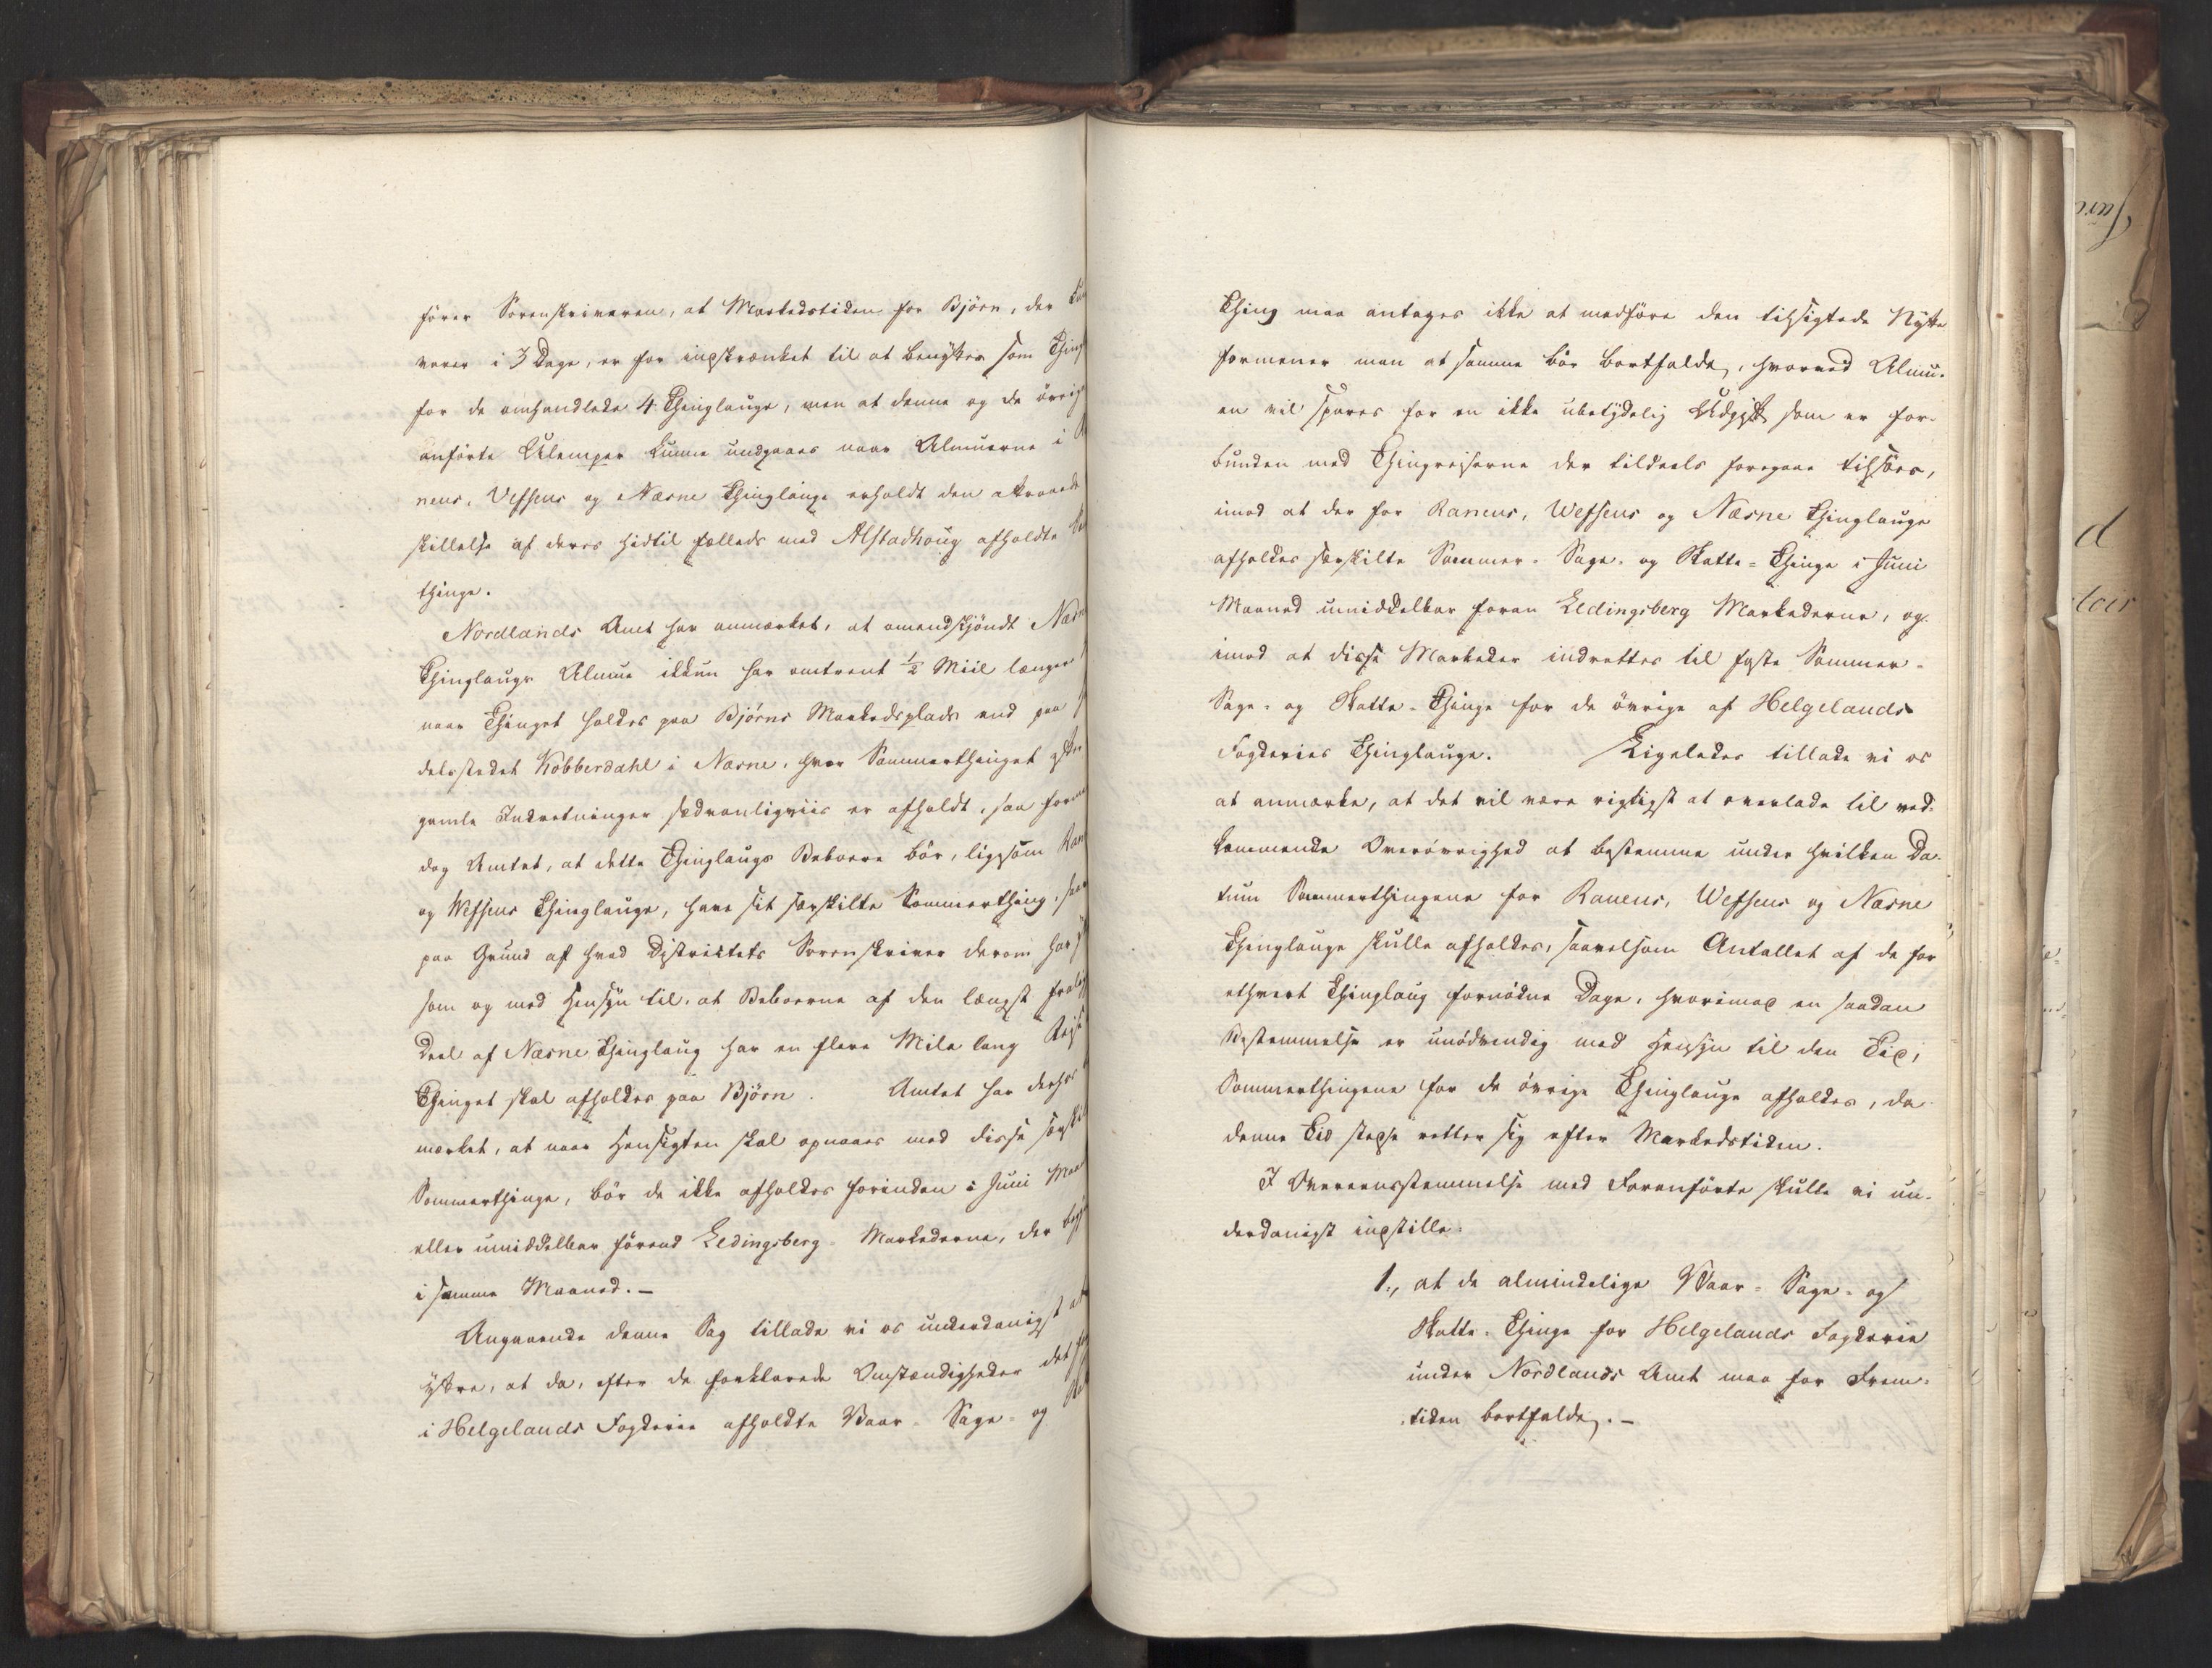 fører Sorenskriveren, at Markedstiden for Bjørn, der
varer i 3 Dage, er for indskrænket til at benyttes som Thing
for de omhandlede 4 Thinglauge, men at denne og de øvrig
anførte Ulemper kunne undgaaes naar Almuerne i
nens, Vefsens og Næsne Thinglauge erholdt den attraaede
skillelse af deres hidtil fælleds med Alstadhoug afholdte
thinge.
Nordlands Amt har anmærket, at omendskjøndt Næsn
Thinglaugs Almue ikkun har omtrent ½ Miil længer
naar Thinget holdes paa Bjørns Markedsplads end paa
delsstedet Kobberdahl i Næsne, hvor Sommerthinget efter
gamle Indretninger sædvanligviis er afholdt, saa forme
dog Amtet, at dette Thinglaugs Beboere bør, ligesom Ran
og Wefsens Thinglauge, have sit særskilte Sommerthing, saa
paa Grund af hvad Districtets Sorenskriver derom har
som og med Hensyn til, at Beboerne af den længst fralig
Deel af Næsne Thinglaug har en flere Mile lang Reise
Thinget skal afholdes paa Bjørn. Amtet har derhos
mærket, at naar Hensigten skal opnaaes med disse særskil
Sommerthinge, bør de ikke afholdes forinden i Juni Maa
eller umiddelbar førend Ledingsberg-Markederne, der
i samme Maaned.—
Angaaende denne Sag tillade vi os underdanigst at
yttre, at da, efter de forklarede Omstændigheder det
i Helgelands Fogderie afholdte Vaar- Sage- og
Thing maa antages ikke at medføre den tilsigtede Nytte
formener man at samme bør bortfalde, hvorved Almu-
en vil spares for en ikke ubetydelig Udgift som er for-
bunden med Thingreiserne der tildeels foregaae tilsøes,
imod at der for Ranens, Wefsens og Næsne Thinglauge
afholdes særskilte Sommer- Sage- og Skatte-Thinge i Juni
Maaned umiddelbar foran Ledingsberg Markederne, og
imod at disse Markeder indrettes til faste Sommer-
Sage- og Skatte-Thinge for de øvrige af Helgelands
Fogderies Thinglauge. Ligeledes tillade vi os
at anmærke, at det vil være rigtigst at overlade til ved-
kommende Overøvrighed at bestemme under hvilken Da-
tum Sommerthingene for Ranens, Wefsens og Næsne
Thinglauge skulle afholdes, saavelsom Antallet af de for
ethvert Thinglaug fornødne Dage, hvorimod en saadan
Bestemmelse er unødvendig med Hensyn til den Tid,
Sommerthingene for de øvrige Thinglauge afholdes, da
denne Tid stedse retter sig efter Markedstiden.
I Overeensstemmelse med Foranførte skulle vi un-
derdanigst indstille:
1., at de almindelige Vaar- Sage- og
Skatte-Thinge for Helgelands Fogderie
under Nordlands Amt maa for Frem-
tiden bortfalde.—